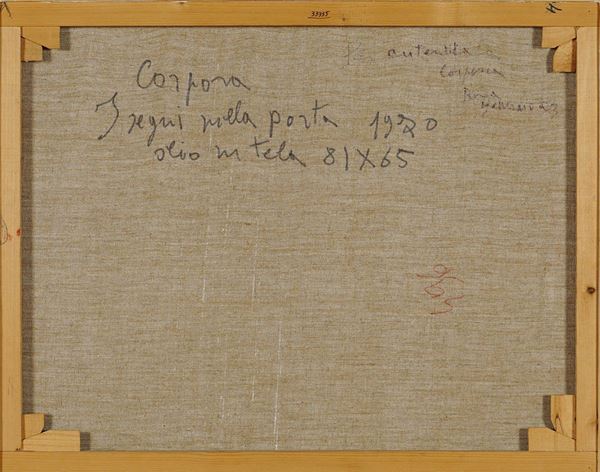 33935
Corpora
I segni nella porta 1970
olio su tela 81X65
autentica
Corpora
Roma